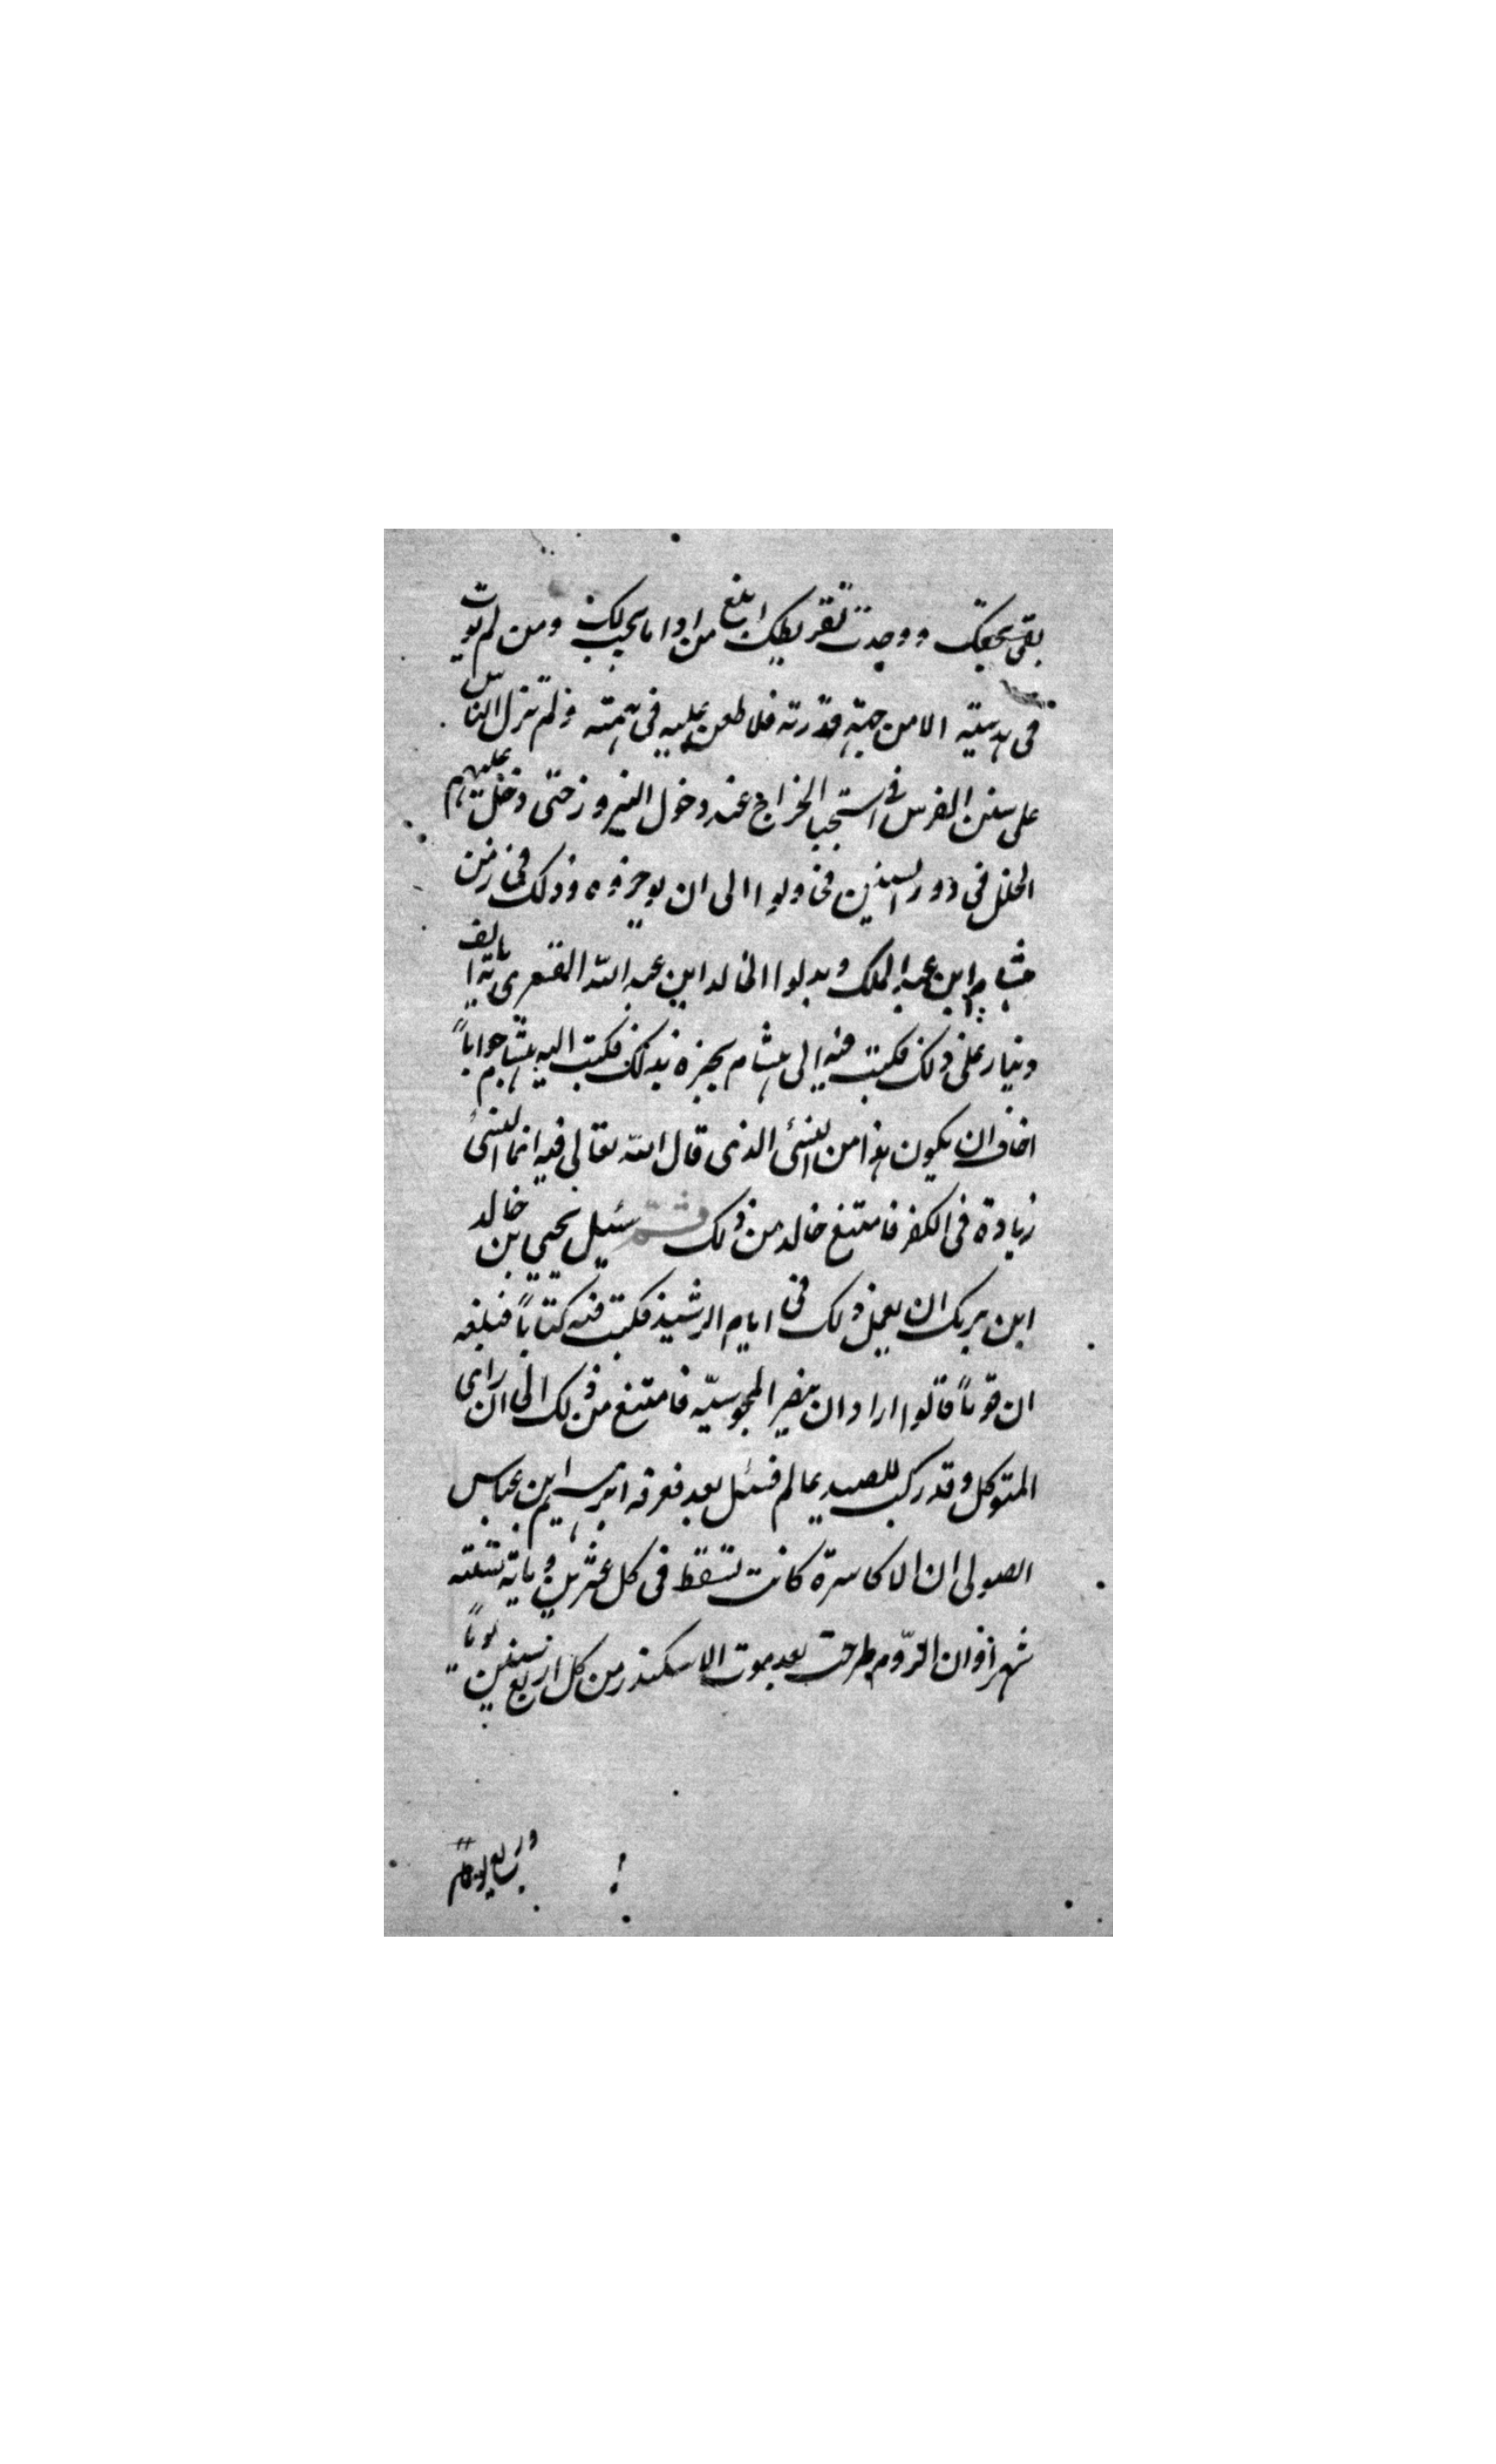 بقی بحقک ووجدت تقریظک ابلغ من اداء ما یجب لک ومن لم یوت
فی هدیته الا من جهة قدرته فلا طعن علیه فی همته ولم تزل الناس
علی سنن الفرس فی الخراج عند دخول النیروز حتی دخل علیهم
الخلل فی دور السنین الی ان یوخروه وذلک فی زمن
هشام ابن عبد الملک وبذلوا الخالد ابن عبد الله القسری مایة الف
دینار علی ذلک فکتب فیه الی هشام یخبره بذلک فکتب الیه هشام جواباً
اخاف ان یکون هذا من النسئ الذی قال الله تعالی فیه انما النسئ
زیادة فی الکفر فامتنع خالد من ذلک ثم سئیل یحیی بن خالد
ابن برمک ان یعمل ذلک فی ایام الرشید فکتب فیه کتاباً فبلغه
ان قوماً قالوا اراد ان ینصر المجوسیّه فامتنع من ذلک الی ان رای
المتوکل وقد رکب للصید فسئل بعد فعرفه ابرهیم ابن عباس
الصولی ان الاکاسرة کانت تسقط فی کل عشرین و مایة سنته
شهر اوان الرّوم طرحت بعد موت الاسکندر من کل اربع سنین یوماً
وربع یوم